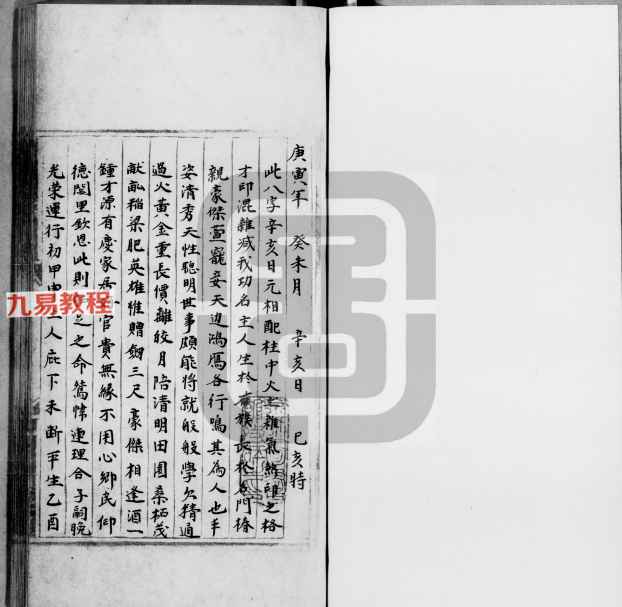 庚寅年 癸未月 辛亥日 己亥時
此八字辛亥日元相配柱中火土雜氣煞印之格
才印混雜減我功名主人生於 族長於名門椿
親豪傑萱寵妾天边鴻鴈各行鳴其為人也丰
姿清秀天性聪明世事頗能將就般般學欠精通
過火黃金重長價離皎月陪清明田園桑柘茂
畝畝稲粱肥英雄惟贈劔三尺豪傑相逢酒一
鍾才源有慶家 官貴無緣不用心鄉民仰
德閭里欽恩此則 之命篤幃連理合子嗣晚
光荣運行初甲申 人庇下未断平生乙酉
九易教程